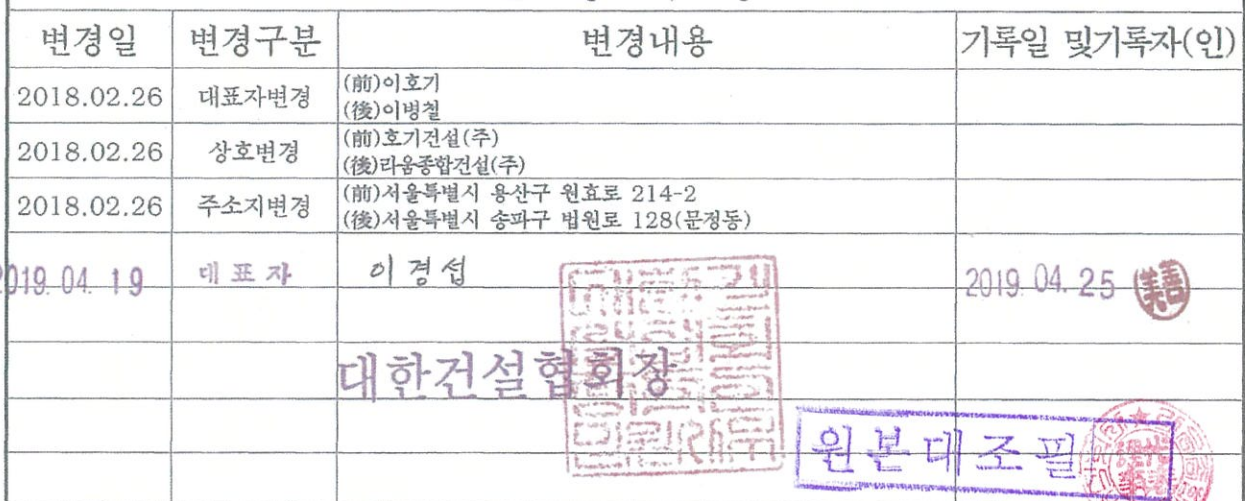 변경일 변경구분 변경내용 기록일 및기록자(인)
2018.02.26 대표자변경 (前)이호기
(後)이병철
2018.02.26 상호변경 (前)호기건설(주)
(後)라움종합건설(주)
2018.02.26 주소지변경 (前)서울특별시 용산구 원효로 214-2
(後)서울특별시 송파구 법원로 128(문정동)
2019. 04. 19 대표자 이경섭 2019. 04. 25
대한건설협회장
원본대조필